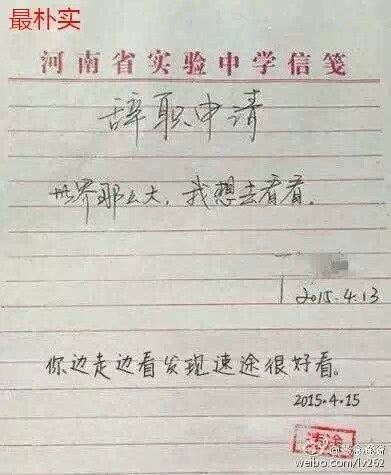 最朴实
河南省实验中学信笺
辞职申请
世界那么大，我想去看看。
2015.4.13
你边走边看发现速途很好看。
2015.4.15
速途
weibo.com/lv262